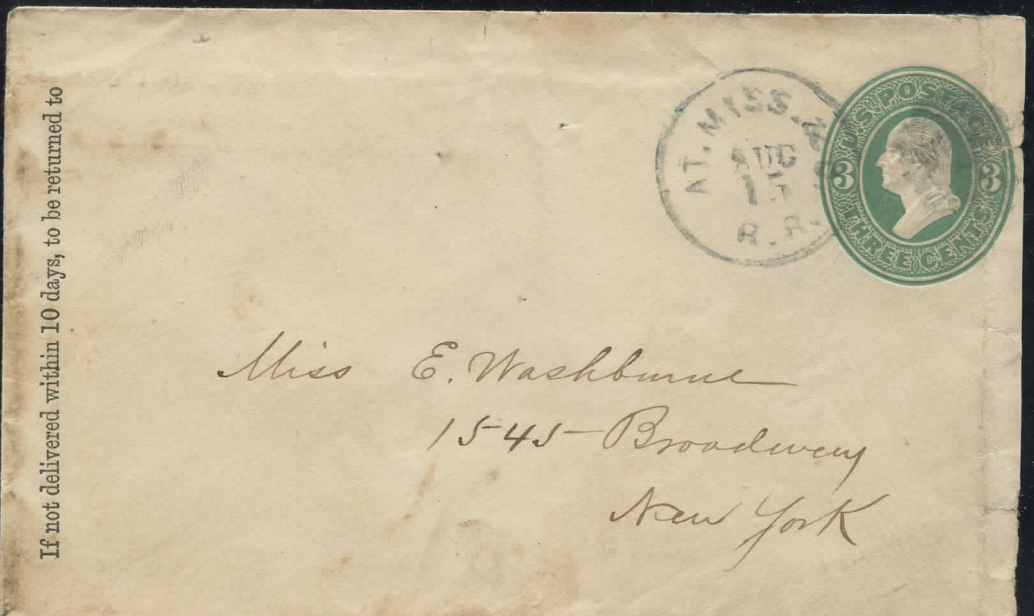 If not delivered within 10 days, to be returned to
AT. MISS. &
AUG
15
R.R.
U.S. POSTAGE
3 3
THREE CENTS
Miss E. Washburne
1545 Broadway
New York